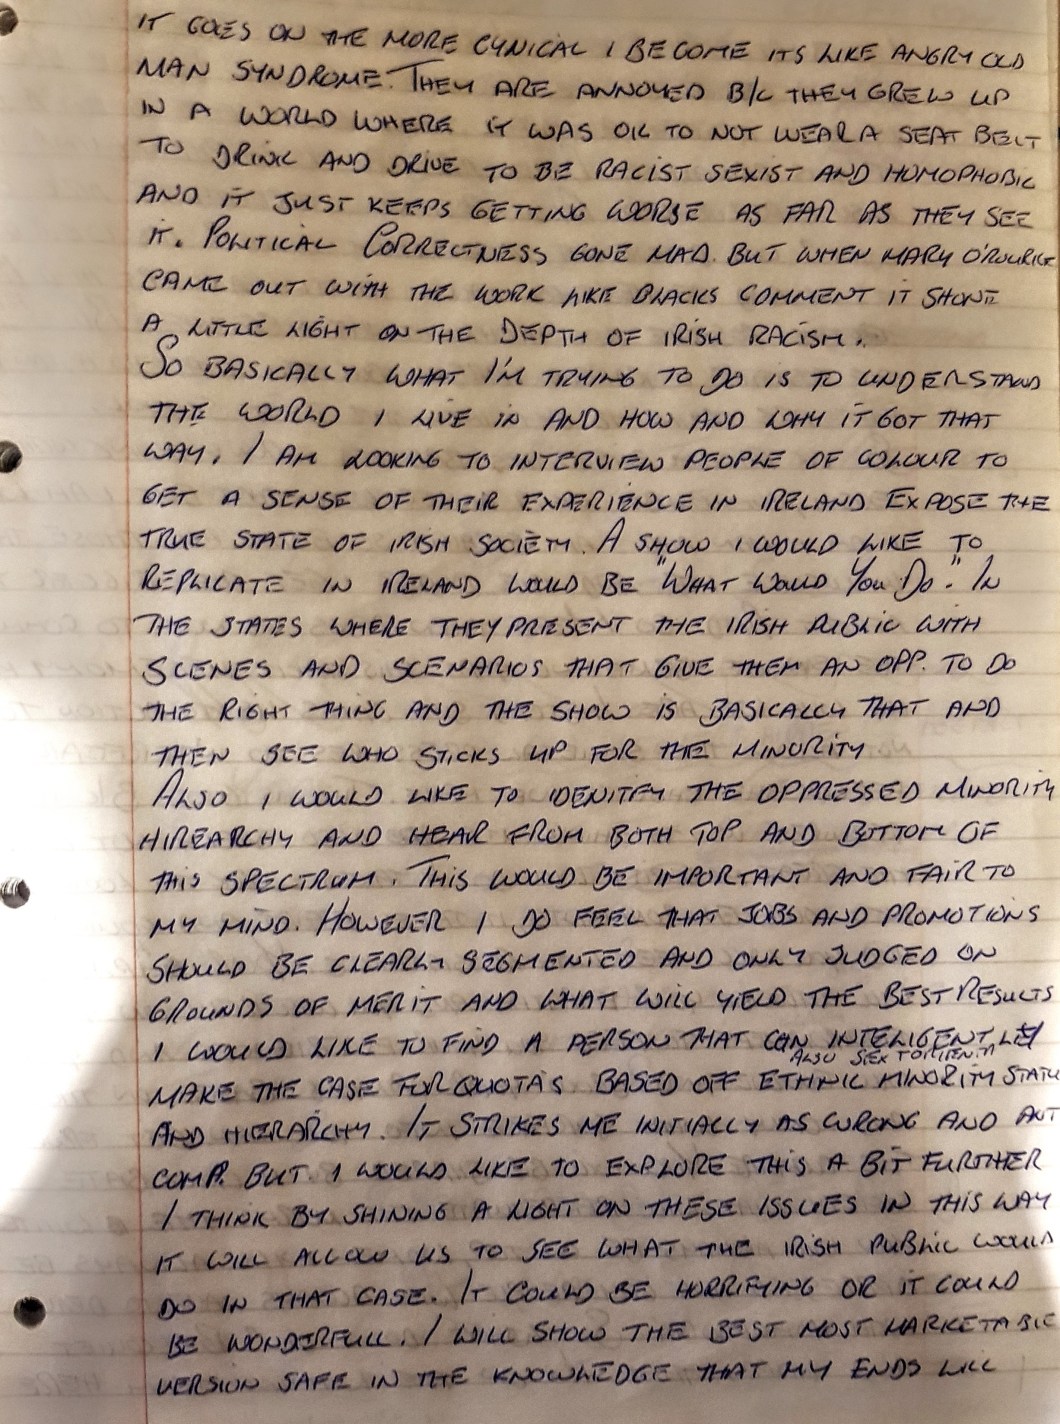 IT GOES ON THE MORE CYNICAL I BECOME ITS LIKE ANGRY OLD
MAN SYNDROME. THEY ARE ANNOYED B/C THEY GREW UP
IN A WORLD WHERE IT WAS OK TO NOT WEAR A SEAT BELT
TO DRINK AND DRIVE TO BE RACIST SEXIST AND HOMOPHOBIC
AND IT JUST KEEPS GETTING WORSE AS FAR AS THEY SEE
IT. POLITICAL CORRECTNESS GONE MAD. BUT WHEN MARY O'ROURKE
CAME OUT WITH THE WORK LIKE BLACKS COMMENT IT SHONE
A LITTLE LIGHT ON THE DEPTH OF IRISH RACISM.
SO BASICALLY WHAT I'M TRYING TO DO IS TO UNDERSTAND
THE WORLD I LIVE IN AND HOW AND WHY IT GOT THAT
WAY. I AM LOOKING TO INTERVIEW PEOPLE OF COLOUR TO
GET A SENSE OF THEIR EXPERIENCE IN IRELAND EXPOSE THE
TRUE STATE OF IRISH SOCIETY. A SHOW I WOULD LIKE TO
REPLICATE IN IRELAND WOULD BE "WHAT WOULD YOU DO." IN
THE STATES WHERE THEY PRESENT THE IRISH PUBLIC WITH
SCENES AND SCENARIOS THAT GIVE THEM AN OPP. TO DO
THE RIGHT THING AND THE SHOW IS BASICALLY THAT AND
THEN SEE WHO STICKS UP FOR THE MINORITY.
ALSO I WOULD LIKE TO IDENITFY THE OPPRESSED MINORITY
HIREARCHY AND HEAR FROM BOTH TOP AND BOTTOM OF
THIS SPECTRUM. THIS WOULD BE IMPORTANT AND FAIR TO
MY MIND. HOWEVER I DO FEEL THAT JOBS AND PROMOTIONS
SHOULD BE CLEARLY SEGMENTED AND ONLY JUDGED ON
GROUNDS OF MERIT AND WHAT WILL YIELD THE BEST RESULTS
I WOULD LIKE TO FIND A PERSON THAT CAN INTELIGENTLEY
ALSO SEX
MAKE THE CASE FOR QUOTA'S BASED OFF ETHNIC MINORITY STATU
AND HIERARCHY. IT STRIKES ME INITIALLY AS WRONG AND ANT
COMP. BUT I WOULD LIKE TO EXPLORE THIS A BIT FURTHER
I THINK BY SHINING A LIGHT ON THESE ISSUES IN THIS WAY
IT WILL ALLOW US TO SEE WHAT THE IRISH PUBLIC WOULD
DO IN THAT CASE. IT COULD BE HORRIFYING OR IT COULD
BE WONDERFULL. I WILL SHOW THE BEST MOST MARKETABLE
VERSION SAFE IN THE KNOWLEDGE THAT MY ENDS WILL